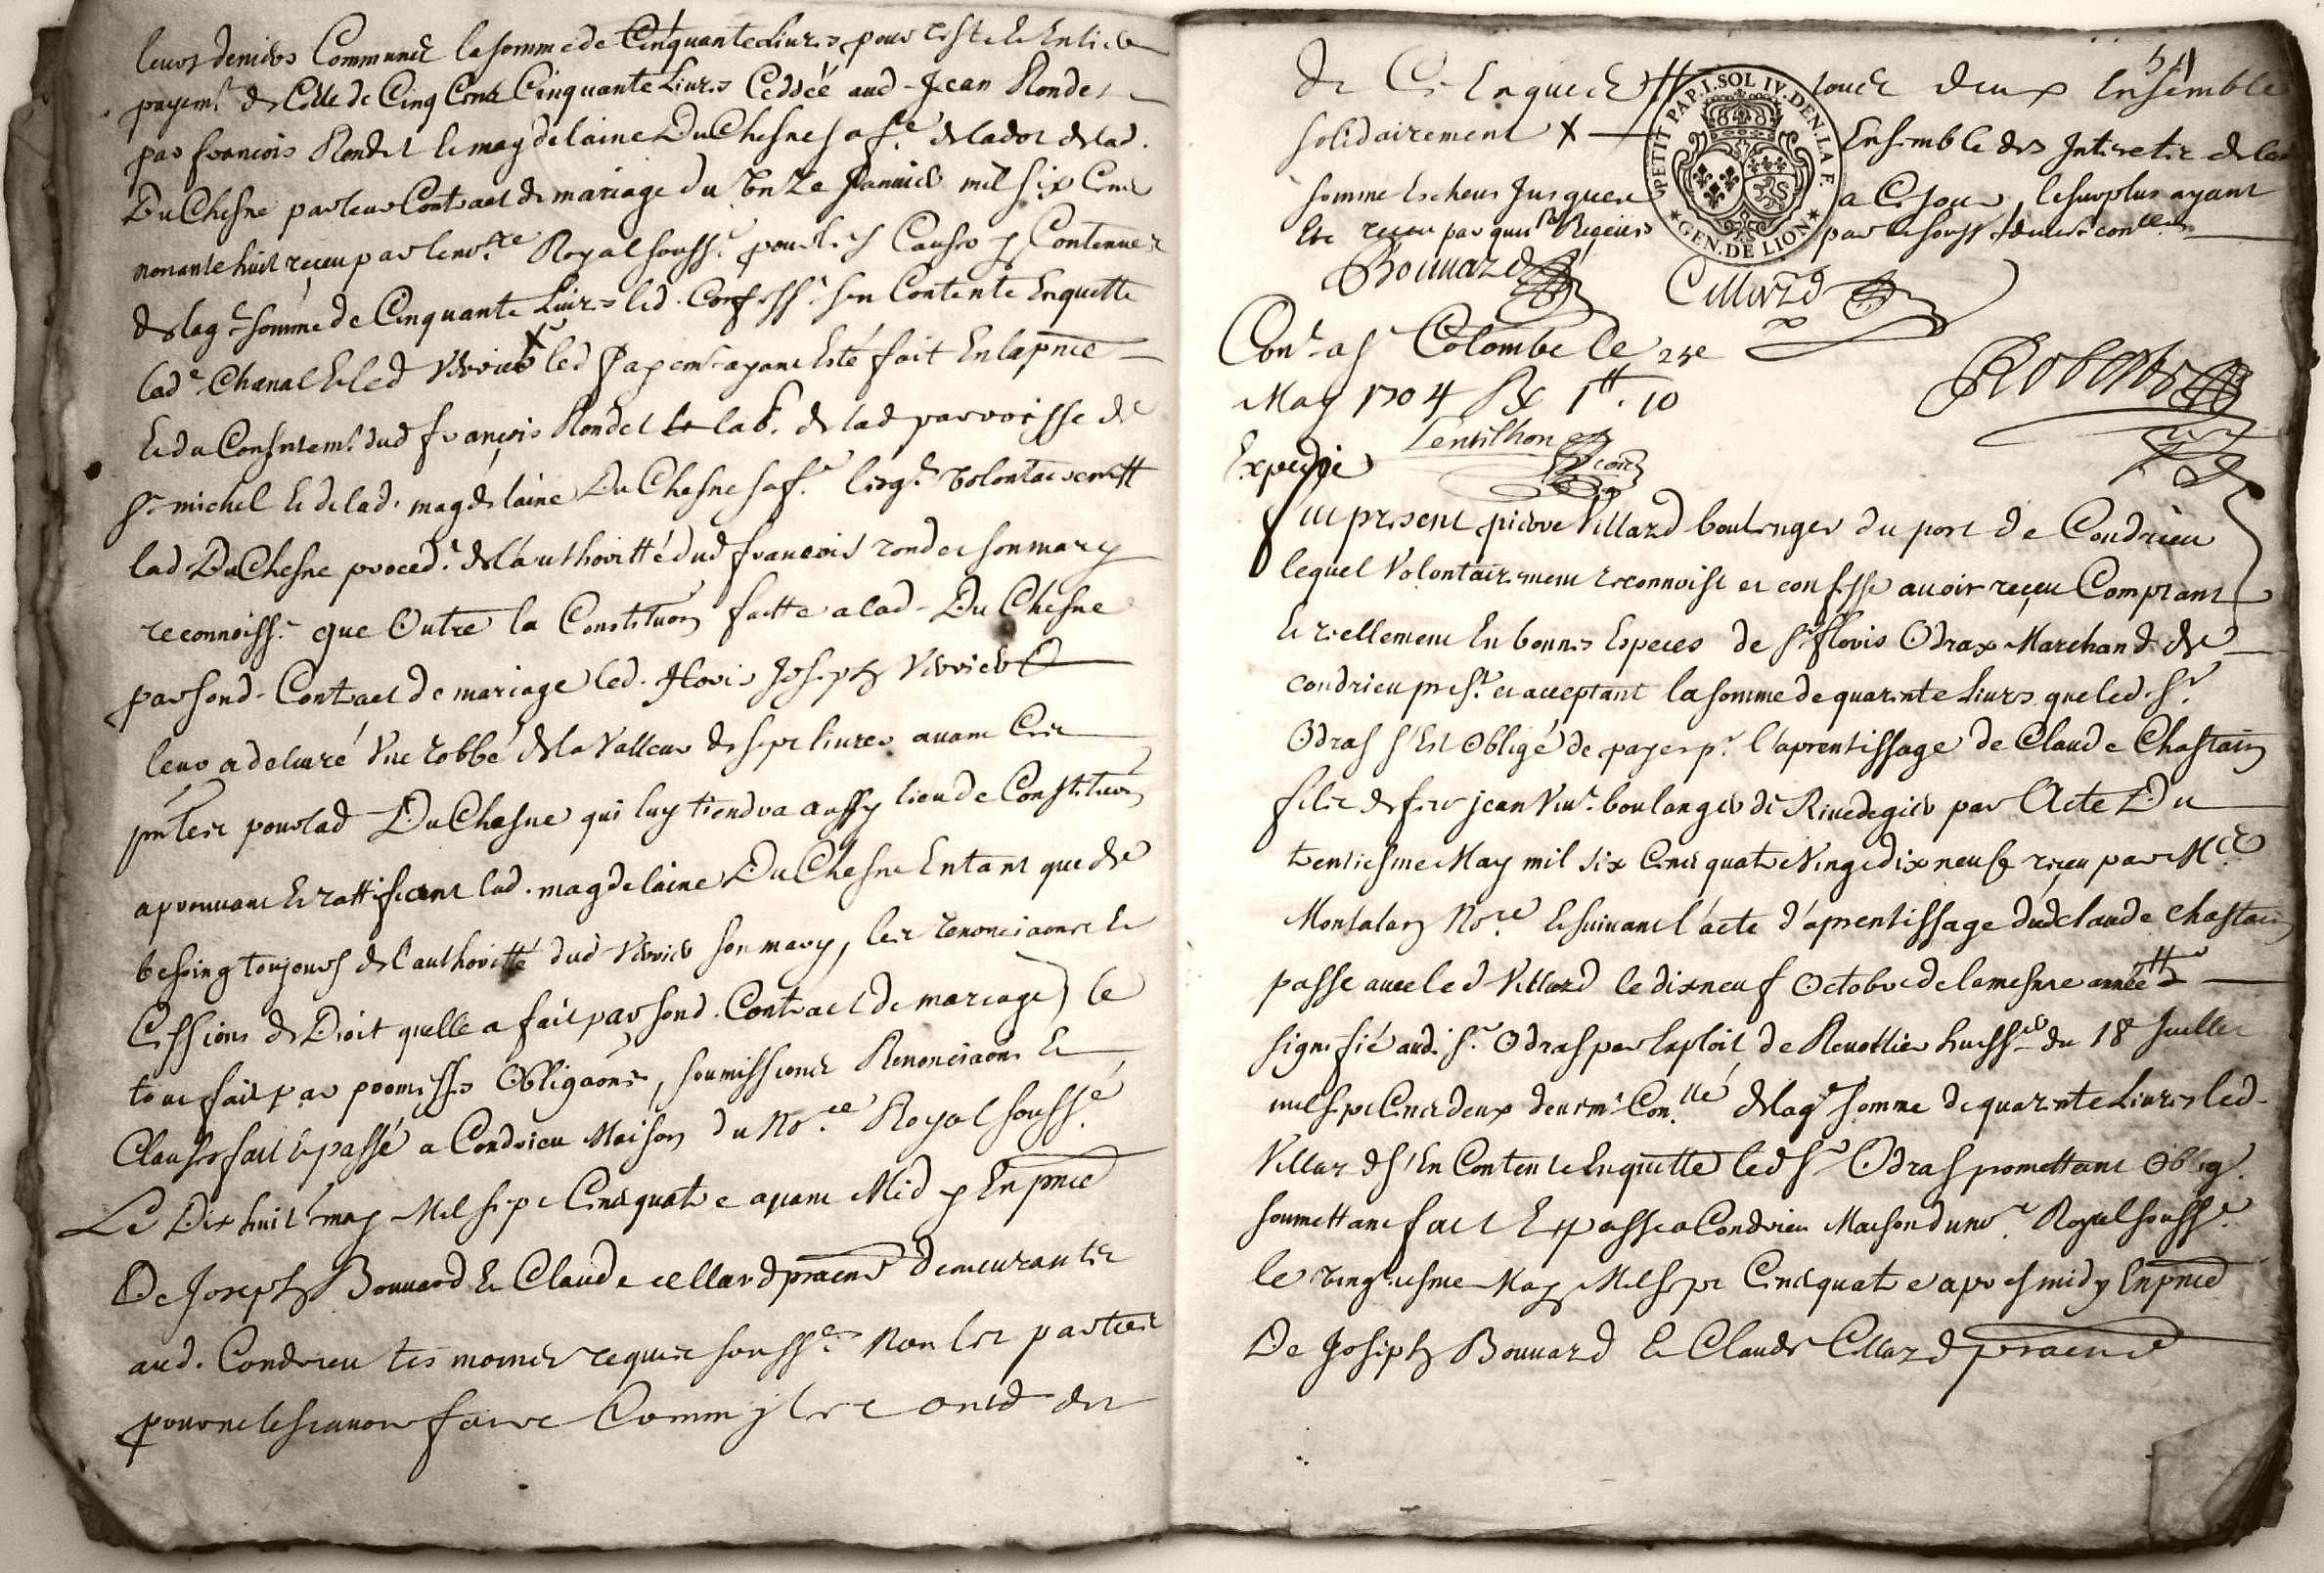 leurs deniers Communs la somme de Cinquante Livres pour reste & Entier
payemt. de Celle de Cinq Cens Cinquante Livres Ceddée aud. Jean Rondet
par francois Rondet & magdelaine DuChesne sa fe. de la dot de lad.
DuChesne par leur Contract de mariage du Unze Janvier mil six Cens
nonante huit receu par le nore. Royal soussé. pour les Causes y Contenues
de lage. somme de Cinquante Livres led. Confesst. sen Contente Enquitte
lade. Chanal & led Verrier x led payemt. ayant Esté fait En la pnce
& du Consentemt. dud francois Rondet de lad parroisse de
St michel & de lad. magdelaine DuChesne sa fe. lesqs. volontairemtt
lad DuChesne proced. de l'authoritté dud francois rondet son mary
reconnoisst. que Outre la Constituon faitte a lad. DuChesne
par sond. Contract de mariage led. floris Joseph Verrier
leur a delivré Une robbe de la Valleur de sept livres avant Ces
pntes pour lad DuChesne qui luy tiendra aussy lieu de Constituon
aprouvant & rattifiant lad. magdelaine DuChesne Entant que de
besoing toujours de l'authoritté dud Verrier son mary, les renonciaons &
Cessions de Droit quelle a fait par sond. Contract de mariage, le
tout fait par promesses Obligaons, soumissions Renonciaons &
Clauses fait & passé a Condrieu Maison du Nore. Royal soussé.
Le Dix huit may Mil sept Cens quatre avant Midy En pnce
De Joseph Bonnard & Claude Cellard praens Demeurants
aud. Condrieu tesmoings requis soussés. Non les parties
pour ne le scavoir faire Comm ils ont dit
54
De Ce Enquis tous deux Ensemble
solidairement x Ensemble des Interetz de lad
somme Escheus Jusques a Ce Jour, le surplus ayant
Bonnard Cellard
Conle. a Ste Colombe le 25e
May 1704 Rx 1tt. 10
Lentilhon
Expedié
fut present pierre Villard boulenger du port de Condrieu
lequel Volontairement reconnoist et confesse avoir receu Comptant
& reellement En bonnes Especes de Sr floris Odrax Marchand de
condrieu prest. et acceptant la somme de quarente Livres que led. Sr
Odras s'Est Obligé de payer pr. l'aprentissage de Claude Chastain
filz de feu jean Vivt. boulanger de Rivedegier par Acte Du
trentiesme May mil six Cens quatre Vingt dix neuf receu par Me
Montalan Nore. & suivant l'acte d'aprentissage dud Claude Chastain
passe avec led Villard le dixneuf Octobre de la mesme année
signifié aud. Sr. Odras par Exploit de Revollier huissr. du 18 Juillet
mil sept Cens deux deuemt. Conllé. de lage. somme de quarente Livres led.
Villard s'En Contente Enquitte led Sr Odras promettant Oblig.
soumettant fait & passe a Condrieu Maison du nore. Royal soussé.
le vingtiesme May Mil sept Cens quatre apres midy En pnce
De Joseph Bonnard & Claude Cellard praens
PETIT PAP.I.SOL IV.DEN.LA F.
GEN.DE LION